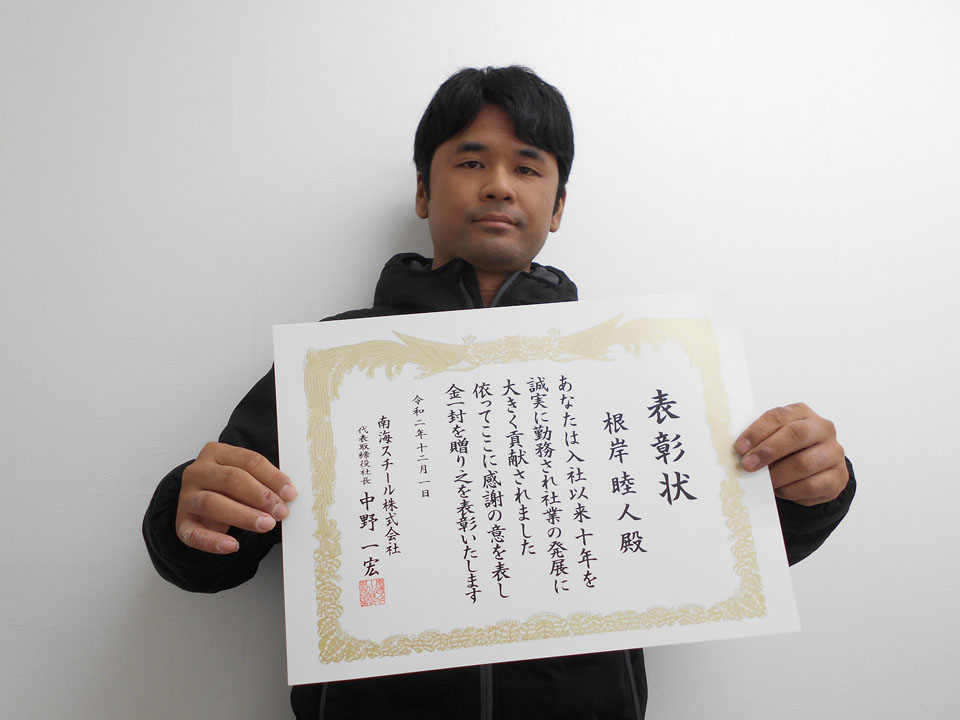 表彰状
根岸睦人殿
あなたは入社以来十年を
誠実に勤務され社業の発展に
大きく貢献されました
依ってここに感謝の意を表し
金一封を贈り之を表彰いたします
令和二年十二月一日
南海スチール株式会社
代表取締役社長 中野一宏